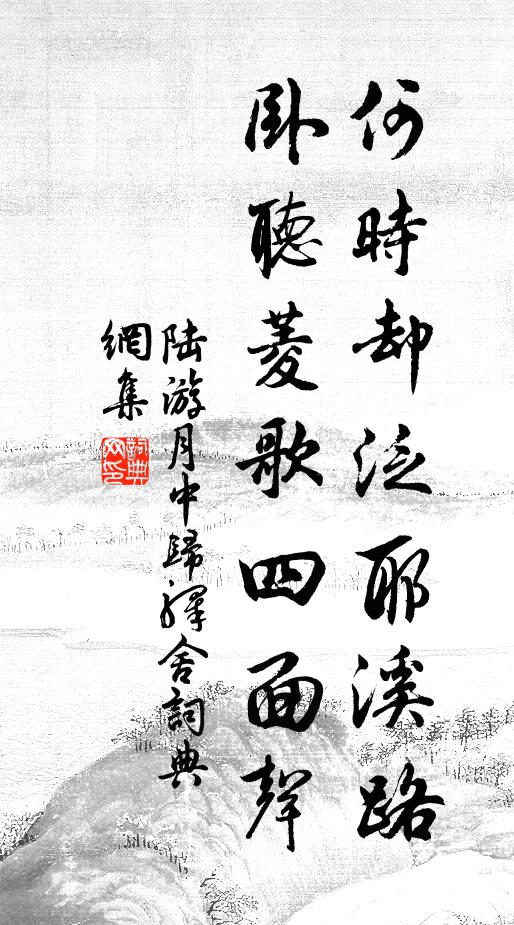 何時却泛耶溪路
臥聽菱歌四面聲
陸游月中歸驛舍詞典
網集
詞典
网印